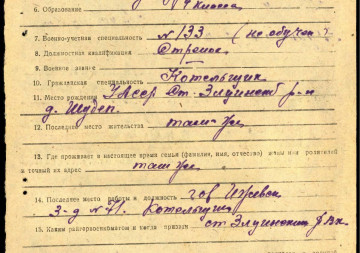 6. Образование 4 класса
7. Военно-учетная специальность №133 (не обучен.)
8. Должностная квалификация Стрелок
9. Военное звание
10. Гражданская специальность Котельщик
11. Место рождения УАССР Ст. Зятцинский р-н
д. Шудег.
12. Последнее место жительства там же
13. Где проживает в настоящее время семья (фамилия, имя, отчество) жены или родителей
и точный их адрес там же
14. Последнее место работы и должность гор Ижевск
З-д №71. Котельщик
15. Каким райгорвоенкоматом и когда призван